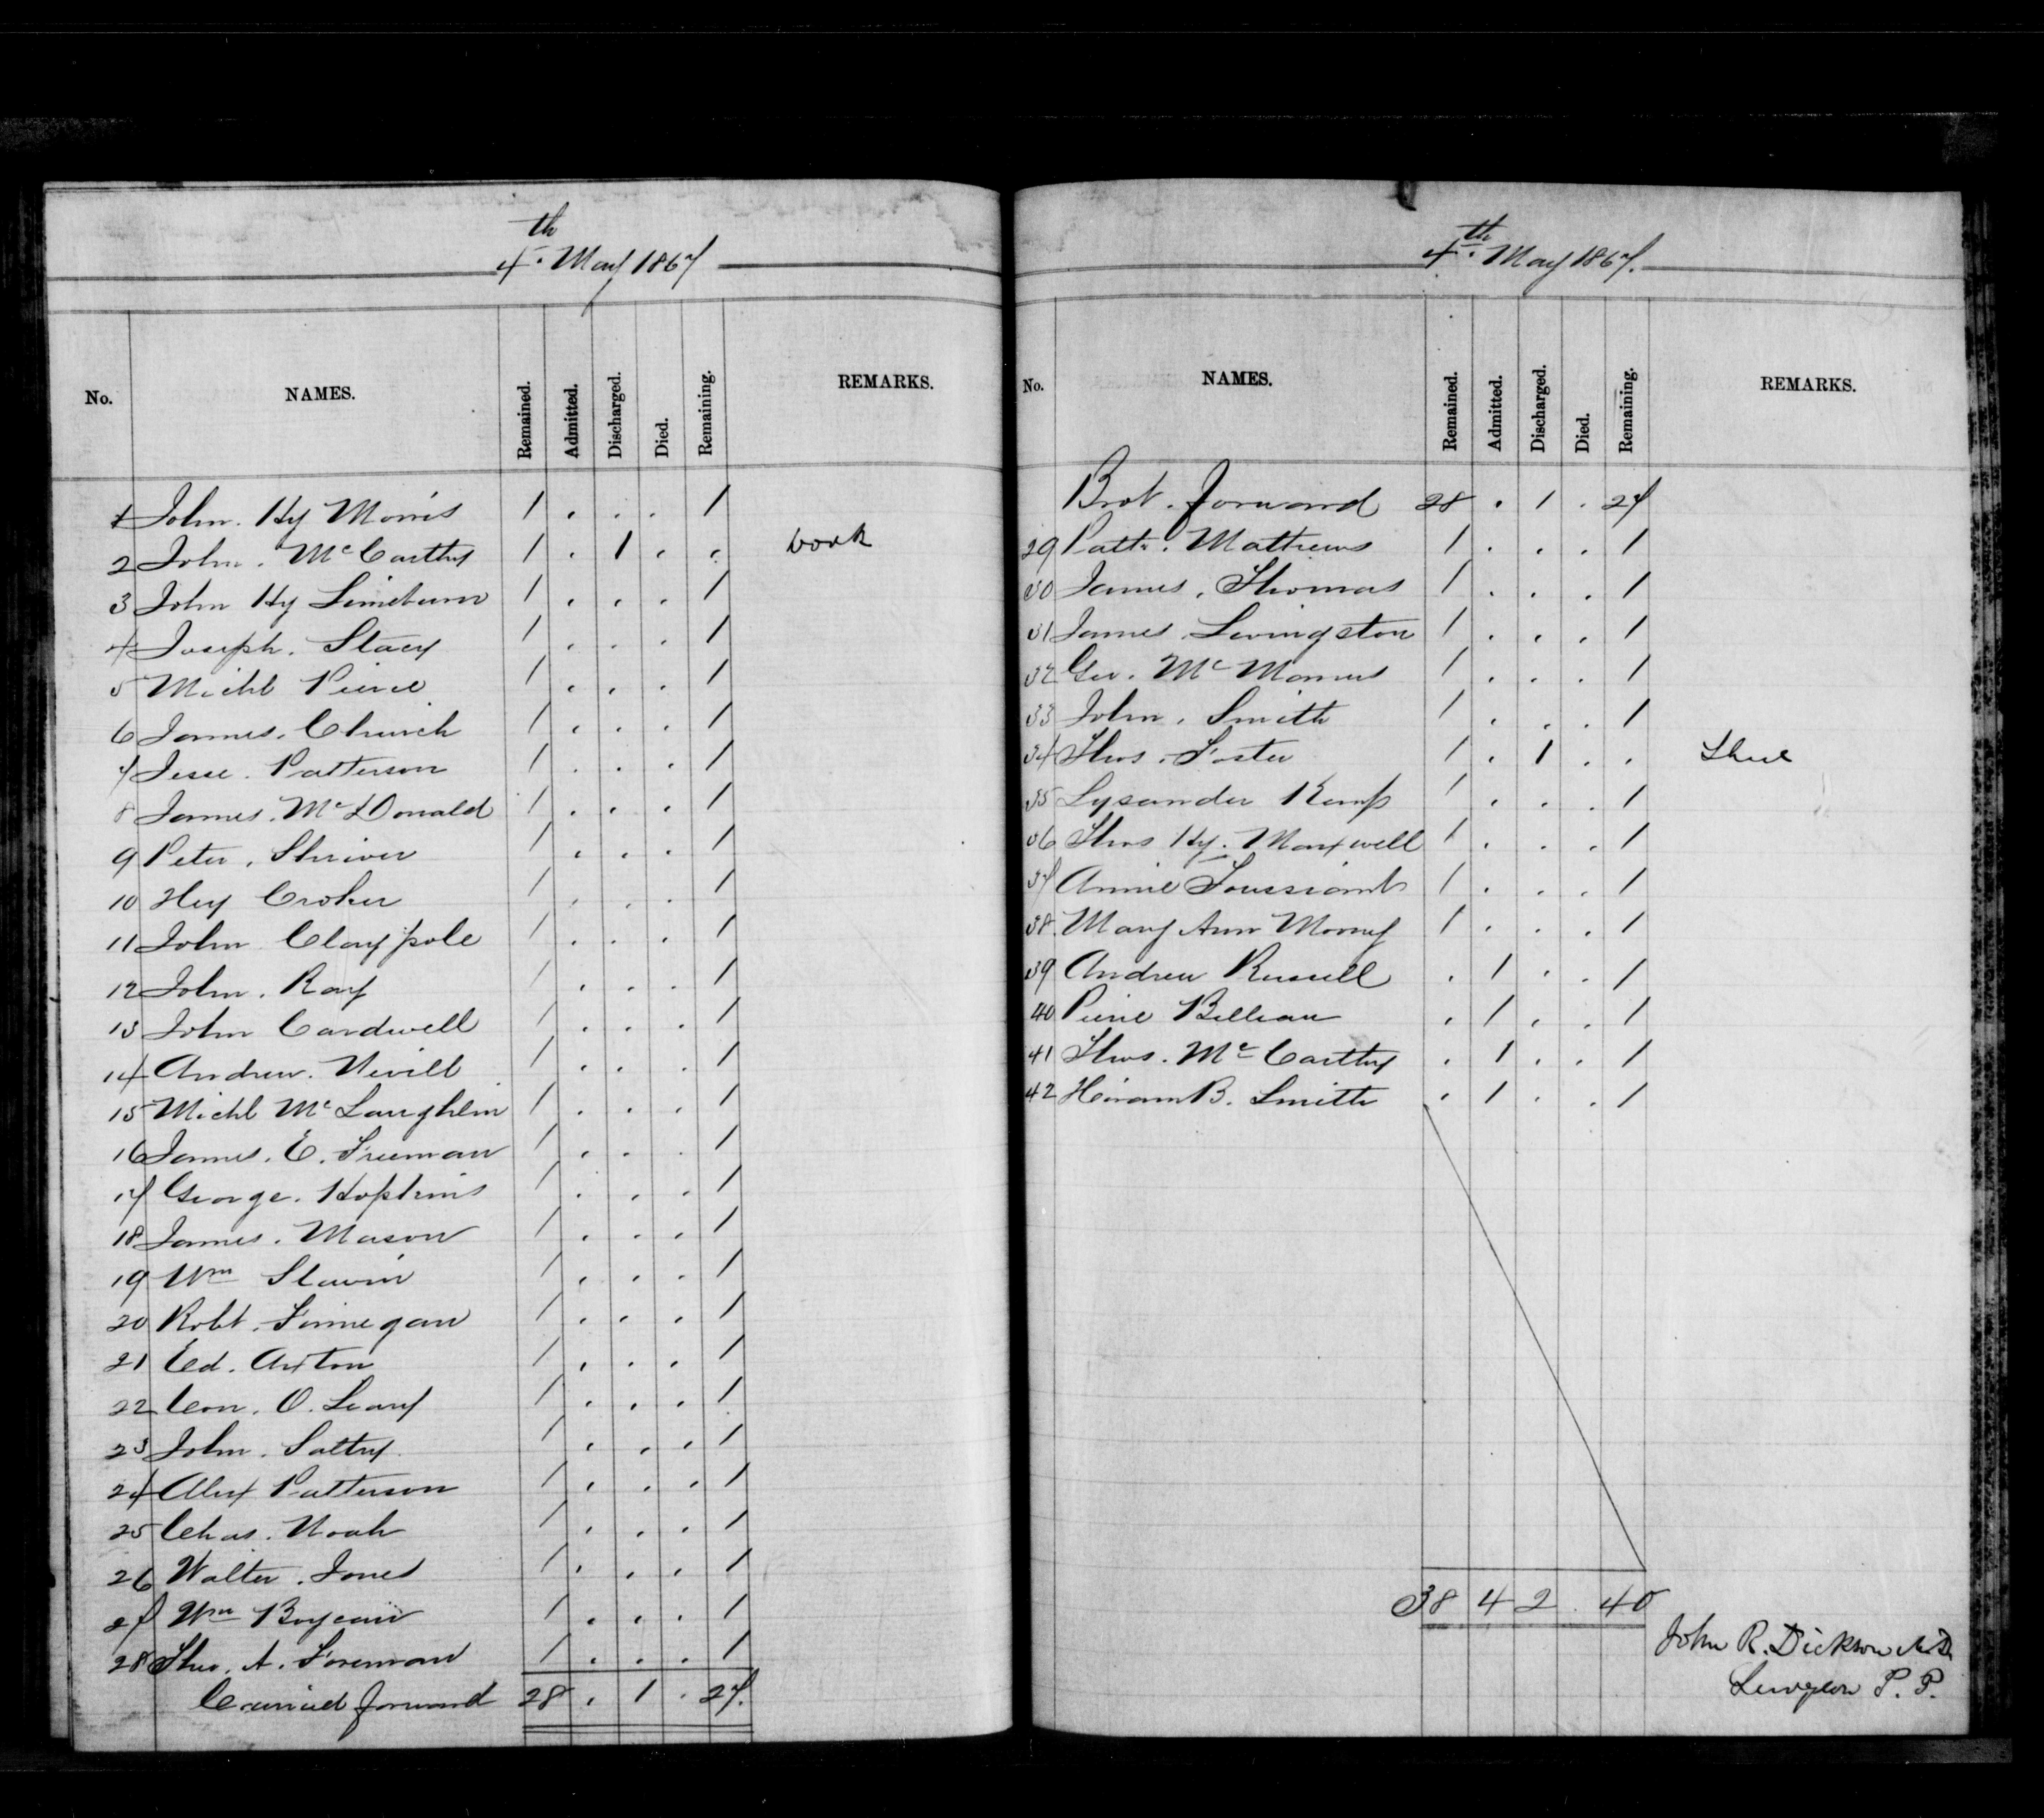 4th. May 1867
No. NAMES. Remained. Admitted. Discharged. Died. Remaining. REMARKS.
1 John. Hy Morris 1 . . . 1
2 John. McCarthy 1 . 1 . . book
3 John Hy Limeburn 1 . . . 1
4 Joseph. Stacy 1 . . . 1
5 Michl Pierce 1 . . . 1
6 James. Church 1 . . . 1
7 Jesse. Patterson 1 . . . 1
8 James. McDonald 1 . . . 1
9 Peter. Shriver 1 . . . 1
10 Hey Croker 1 . . . 1
11 John Claypole 1 . . . 1
12 John. Ray 1 . . . 1
13 John Cardwell 1 . . . 1
14 Andrew. Nevill 1 . . . 1
15 Michl McLaughlin 1 . . . 1
16 James. E. Freeman 1 . . . 1
17 George. Hopkins 1 . . . 1
18 James. Mason 1 . . . 1
19 Wm Slavin 1 . . . 1
20 Robt. Finnegan 1 . . . 1
21 Ed. Axton 1 . . . 1
22 Con. O. Leary 1 . . . 1
23 John. Saltry 1 . . . 1
24 Alex Patterson 1 . . . 1
25 Chas. Noah 1 . . . 1
26 Walter. Jones 1 . . . 1
27 Wm Boyeau 1 . . . 1
28 Thos. A. Foreman 1 . . . 1
Carried forward 28 . 1 . 27.
4th. May 1867.
No. NAMES. Remained. Admitted. Discharged. Died. Remaining. REMARKS.
Brot. forward 28 . 1 . 27
29 Patk. Mathews 1 . . . 1
30 James. Thomas 1 . . . 1
31 James Livingston 1 . . . 1
32 Geo. McManus 1 . . . 1
33 John. Smith 1 . . . 1
34 Thos. Foster 1 . 1 . .
35 Lysander Kemp 1 . . . 1
36 Thos Hy. Maxwell 1 . . . 1
37 Annie Toussiant 1 . . . 1
38. Mary Ann Morry 1 . . . 1
39 Andrew Russell . 1 . . 1
40 Pierre Belleau . 1 . . 1
41 Thos. McCarthy . 1 . . 1
42 Hiram B. Smith . 1 . . 1
38 4 2 . 40
John R. Dickson M.D.
Surgeon P. P.